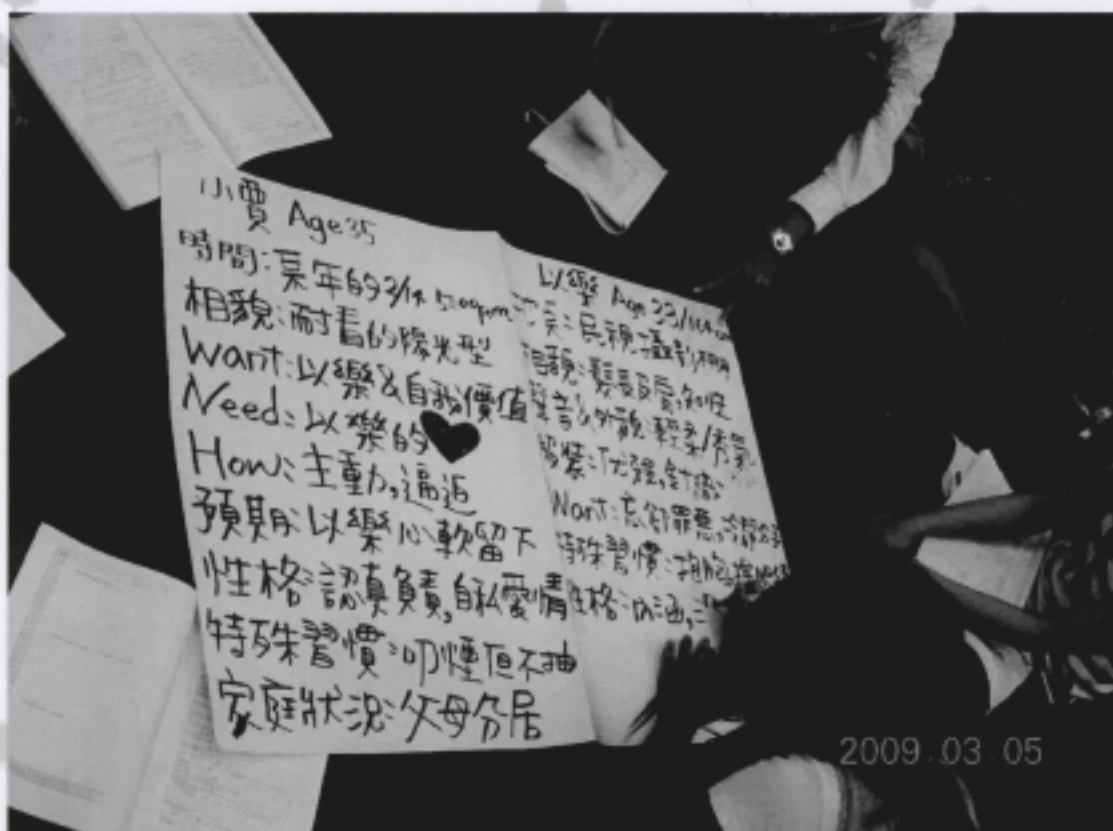 小賈 Age 35
時間:某年的2/14 5:00pm
相貌:耐看的陽光型
Want:以樂&自我價值
Need:以樂的♥
How:主動,逼近
預期:以樂心軟留下
性格:認真負責,自私愛情
特殊習慣:叼煙但不抽
家庭狀況:父母分居
以樂 Age 33/
民視攝影棚
相貌:髮長及肩,知性
聲音&外貌:輕柔/秀氣
Want:
特殊習慣:
性格:內涵,
2009.03.05